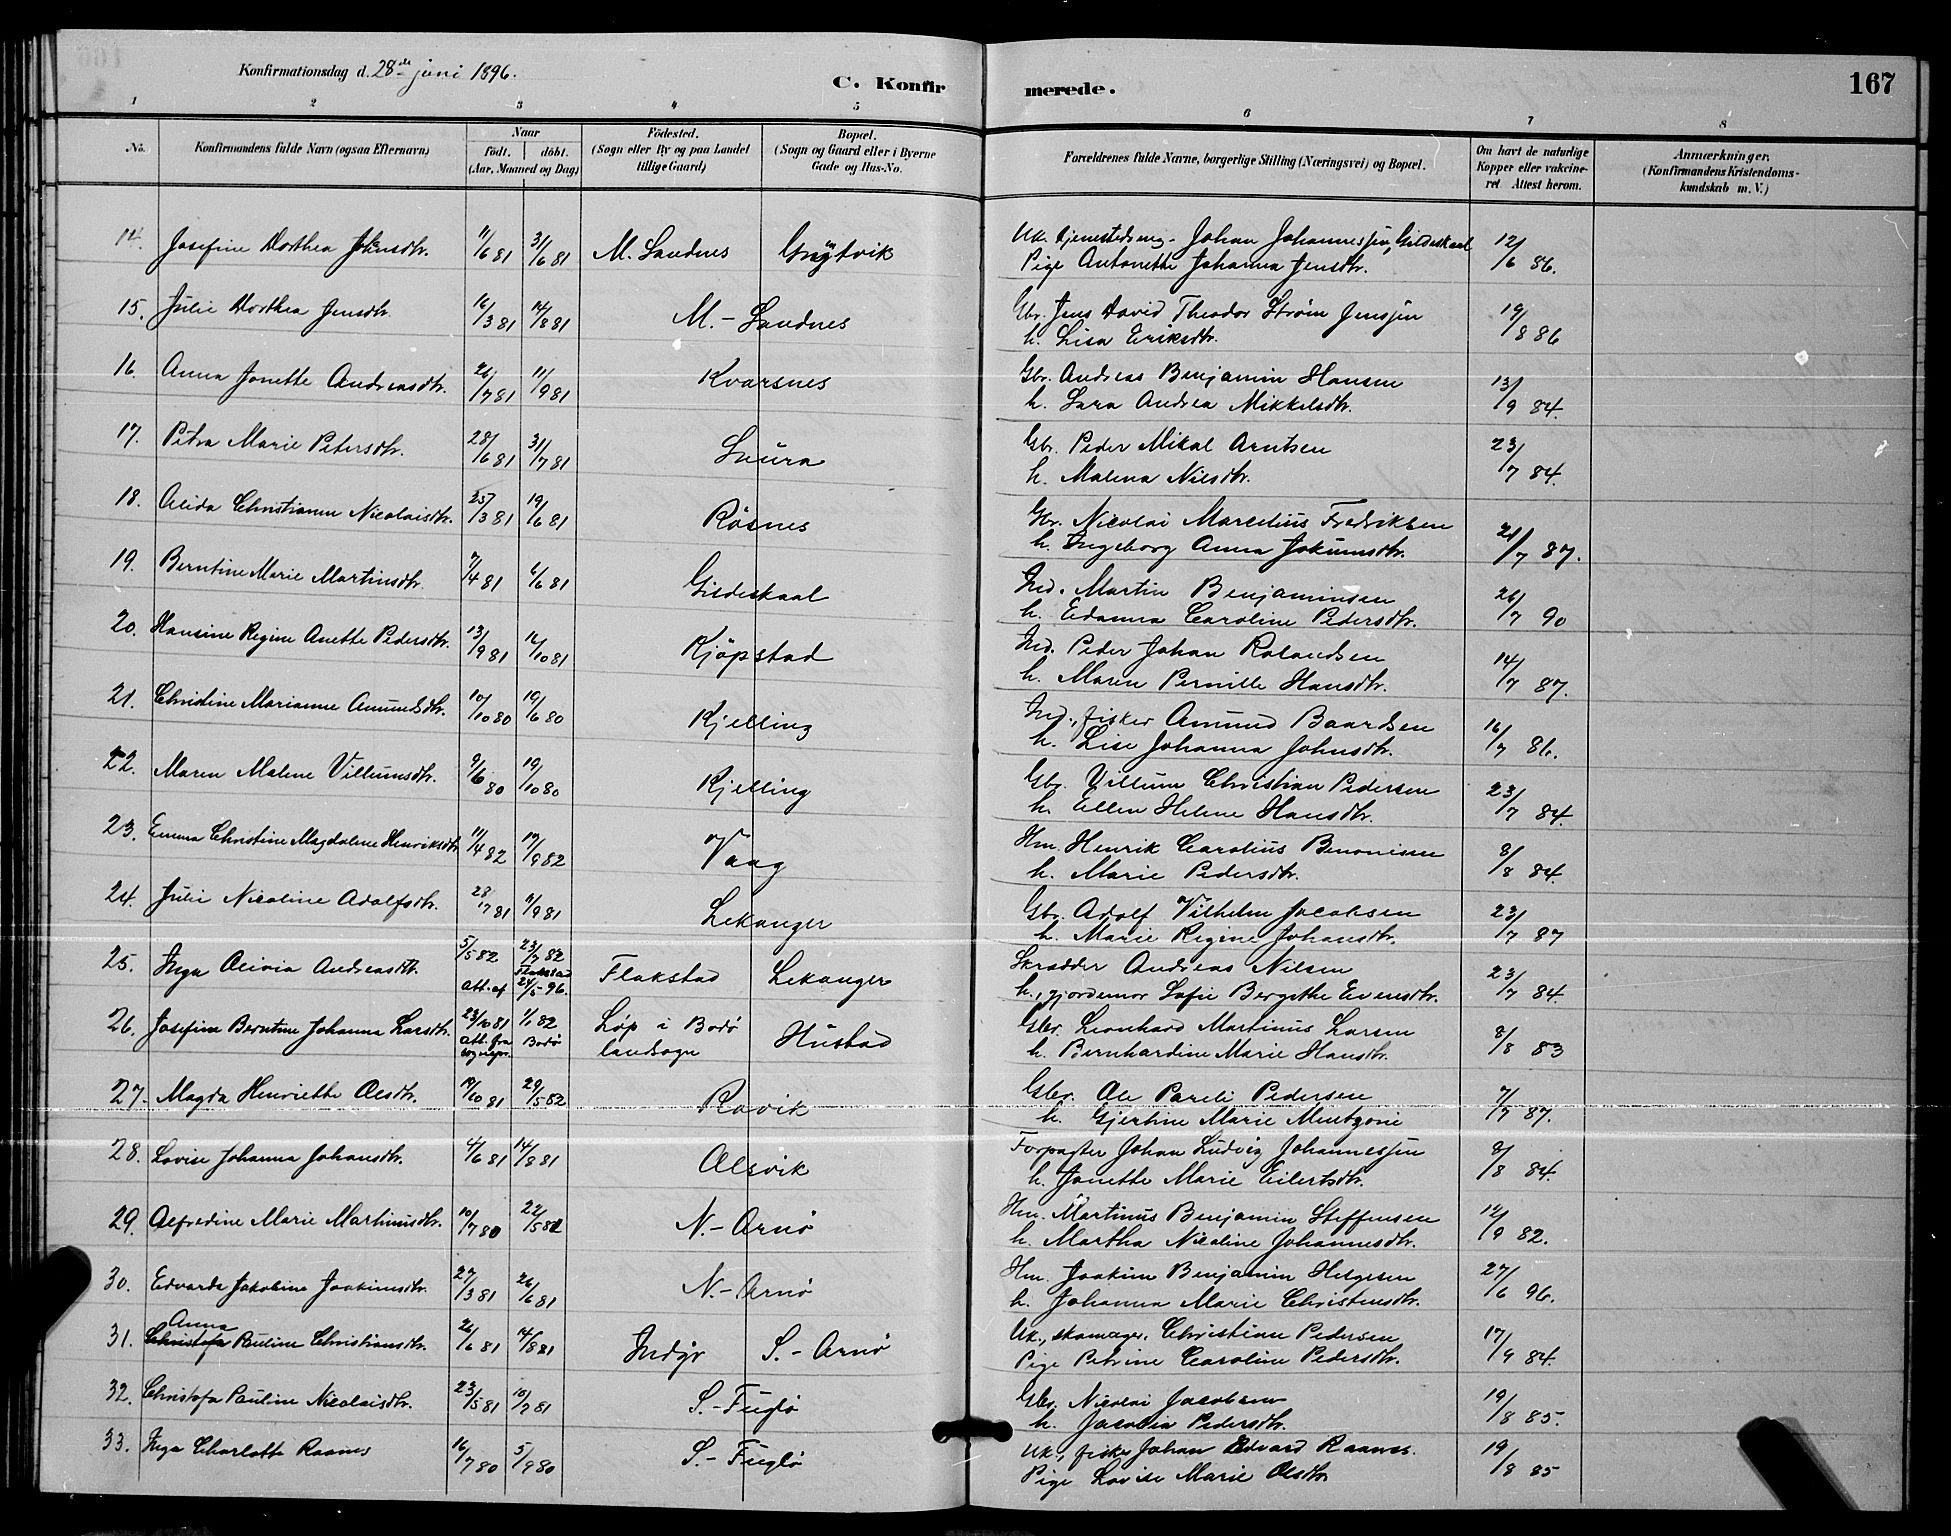 Konfirmationsdag d. 28de juni 1896.
C. Konfirmerede.
167
1 2 3 4 5 6 7 8
No.
Konfirmandens fulde Navn (ogsaa Efternavn)
Naar
födt. döbt.
(Aar, Maaned og Dag)
Födested.
(Sogn eller By og paa Landet
tillige Gaard)
Bopæl.
(Sogn og Gaard eller i Byerne
Gade og Hus-No.
Forældrenes fulde Navne, borgerlige Stilling (Næringsvei) og Bopæl.
Om havt de naturlige
Kopper eller vakcine-
ret Attest herom.
Anmærkninger.
(Konfirmandens Kristendoms-
kundskab m. V.)
14. Josefine Dorthea Johnsdtr. 11/6 81 31/6 81 M. Sandnes Grøtvik Uk. tjenestedreng. Johan Johannesjen, Gildeskaal 12/6 86.
Pige Antonette Johanna Jensdtr.
15. Julie Dorthea Jensdtr. 16/3 81 14/8 81 M.- Sandnes Gbr. Jens David Theodor Strøm Jensjen 19/8 86
h. Lisa Eriksdtr.
16. Anna Jonette Andreasdtr. 26/7 81 11/9 81 Kvarsnes Gbr. Andreas Benjamin Hansen 13/9 84.
h. Sara Andrea Mikkelsdtr.
17. Petra Marie Petersdtr. 28/6 81 31/7 81 Saura Gbr. Peder Mikal Arntsen 23/7 84.
h. Malena Nilsdtr.
18. Alida Christianna Nicolaisdtr. 25/3 81 19/6 81 Røsnes Gbr. Nicolai Marcelius Fredriksen 21/7 87.
h. Ingeborg Anna Jokumsdtr.
19. Berntine Marie Martinsdtr. 7/4 81 6/6 81 Gildeskaal Ind. Martin Benjaminsen 26/7 90
h. Edanna Caroline Pedersdtr.
20. Hansine Regine Anette Pedersdtr. 13/9 81 16/10 81 Kjøpstad Ind. Peder Johan Rolandsen 14/7 87.
h. Maren Pernille Hansdtr.
21. Christine Marianne Amundsdtr. 10/10 80 19/6 80 Kjelling Ind., fisker Amund Baardsen 16/7 86.
h. Lise Johanna Johnsdtr.
22. Maren Malene Villumsdtr. 9/6 80 19/10 80 Kjelling Gbr. Villum Christian Pedersen 23/7 84.
h. Ellen Helene Hansdtr.
23. Emma Christine Magdalene Henriksdtr. 11/4 82 17/9 82 Vaag Hm. Henrik Carolius Benonisen 8/8 84.
h. Marie Pedersdtr.
24. Julie Nicoline Adolfsdtr. 28/7 81 11/9 81 Lekanger Gbr. Adolf Vilhelm Jacobsen 23/7 87
h. Marie Regine Johansdtr.
25. Inga Olivia Andreasdtr. 5/5 82 23/7 82 Flakstad Lekanger Skrædder Andreas Nilsen 23/7 84.
Att. af Flakstad 24/5 96. h., gjordemor Sofie Bergithe Evensdtr.
26. Josefine Berntine Johanna Larsdtr. 23/10 81 1/1 82 Løp i Bodø Hustad Gbr. Leonhard Martinus Larsen 8/8 83
Att. fra sognepr. Bodø landsogn h. Bernhardine Marie Hansdtr.
27. Magda Henriette Olesdtr. 19/10 81 29/5 82 Ravik Gbr. Ole Pareli Pedersen 7/7 87.
h. Gjertine Marie Mentzoni
28. Lovise Johanna Johansdtr. 4/6 81 14/8 81 Alsvik Forpagter Johan Ludvig Johannesjen 8/8 84.
h. Jonette Marie Eilertsdtr.
29. Alfredine Marie Martinusdtr. 10/7 80 22/5 81 N.- Arnø Hm. Martinus Benjamin Steffensen 12/9 82.
h. Martha Nicoline Johannesdtr.
30. Edvarda Jakobine Joakimsdtr. 27/3 81 26/6 81 N.- Arnø Hm. Joakim Benjamin Helgesen 27/6 96.
h. Johanna Marie Christensdtr.
Anna
31. Christofa Pauline Christiansdtr. 26/6 81 14/8 81 Indyr S.- Arnø Uk., skomager. Christian Pedersen 17/9 84.
Pige Petrine Caroline Pedersdtr.
32. Christofa Pauline Nicolaisdtr. 23/5 81 10/7 81 S.- Fuglø Gbr. Nicolai Jacobsen 19/8 85.
h. Jacobia Pedersdtr.
33. Inga Charlotte Raanes 16/7 80 5/9 80 S.- Fuglø Uk., fisker Johan Edvard Raanes. 19/8 85
Pige Lovise Marie Olsdtr